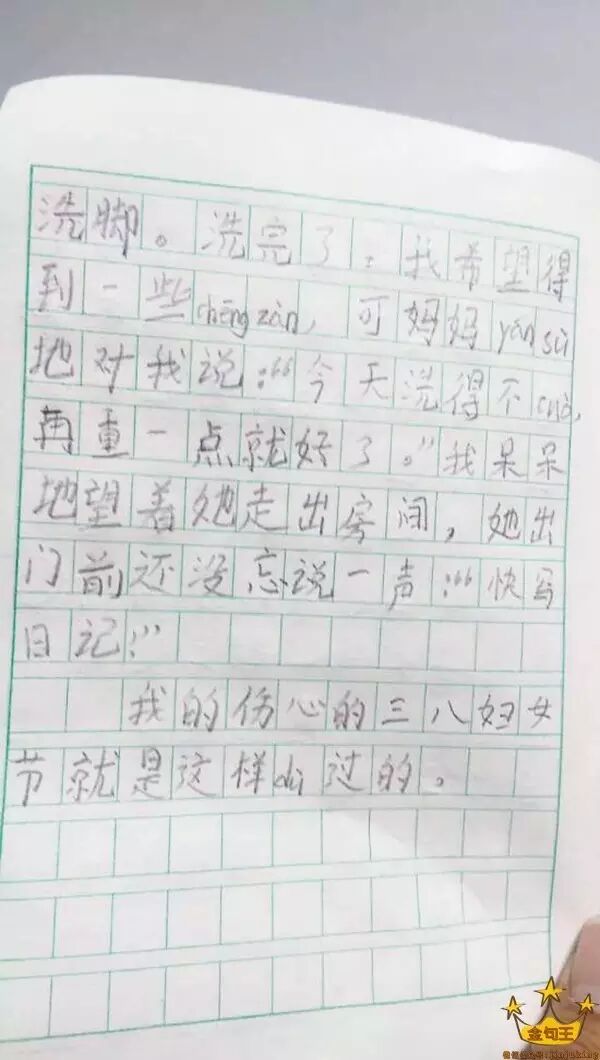 洗脚。洗完了，我希望得
到一些chēng zàn，可妈妈yán sù
地对我说:“今天洗得不cuò,
再重一点就好了。”我呆呆
地望着她走出房间，她出
门前还没忘说一声:“快写
日记!”
我的伤心的三八妇女
节就是这样dù过的。
金句王